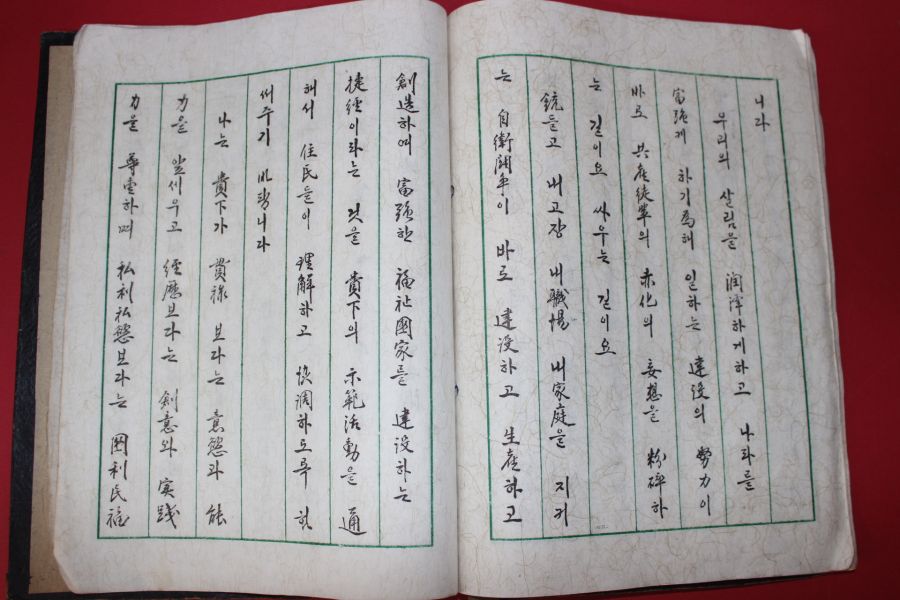 니라
우리의 살림을 潤澤하게하고 나라를
富强게 하기爲해 일하는 建設의 勞力이
바로 共産徒輩의 赤化의 妄想을 粉碎하
는 길이요 싸우는 길이요
銃들고 내고장 내職場 내家庭을 지키
는 自衛鬪爭이 바로 建設하고 生産하고
創造하며 富强한 福祉國家를 建設하는
捷經이라는 것을 貴下의 示範活動을 通
해서 住民들이 理解하고 協調하도록 힘
써주기 바랍니다
나는 貴下가 貫祿 보다는 意慾과 能
力을 앞세우고 經歷보다는 創意와 実践
力을 尊重하며 私利私慾보다는 國利民福